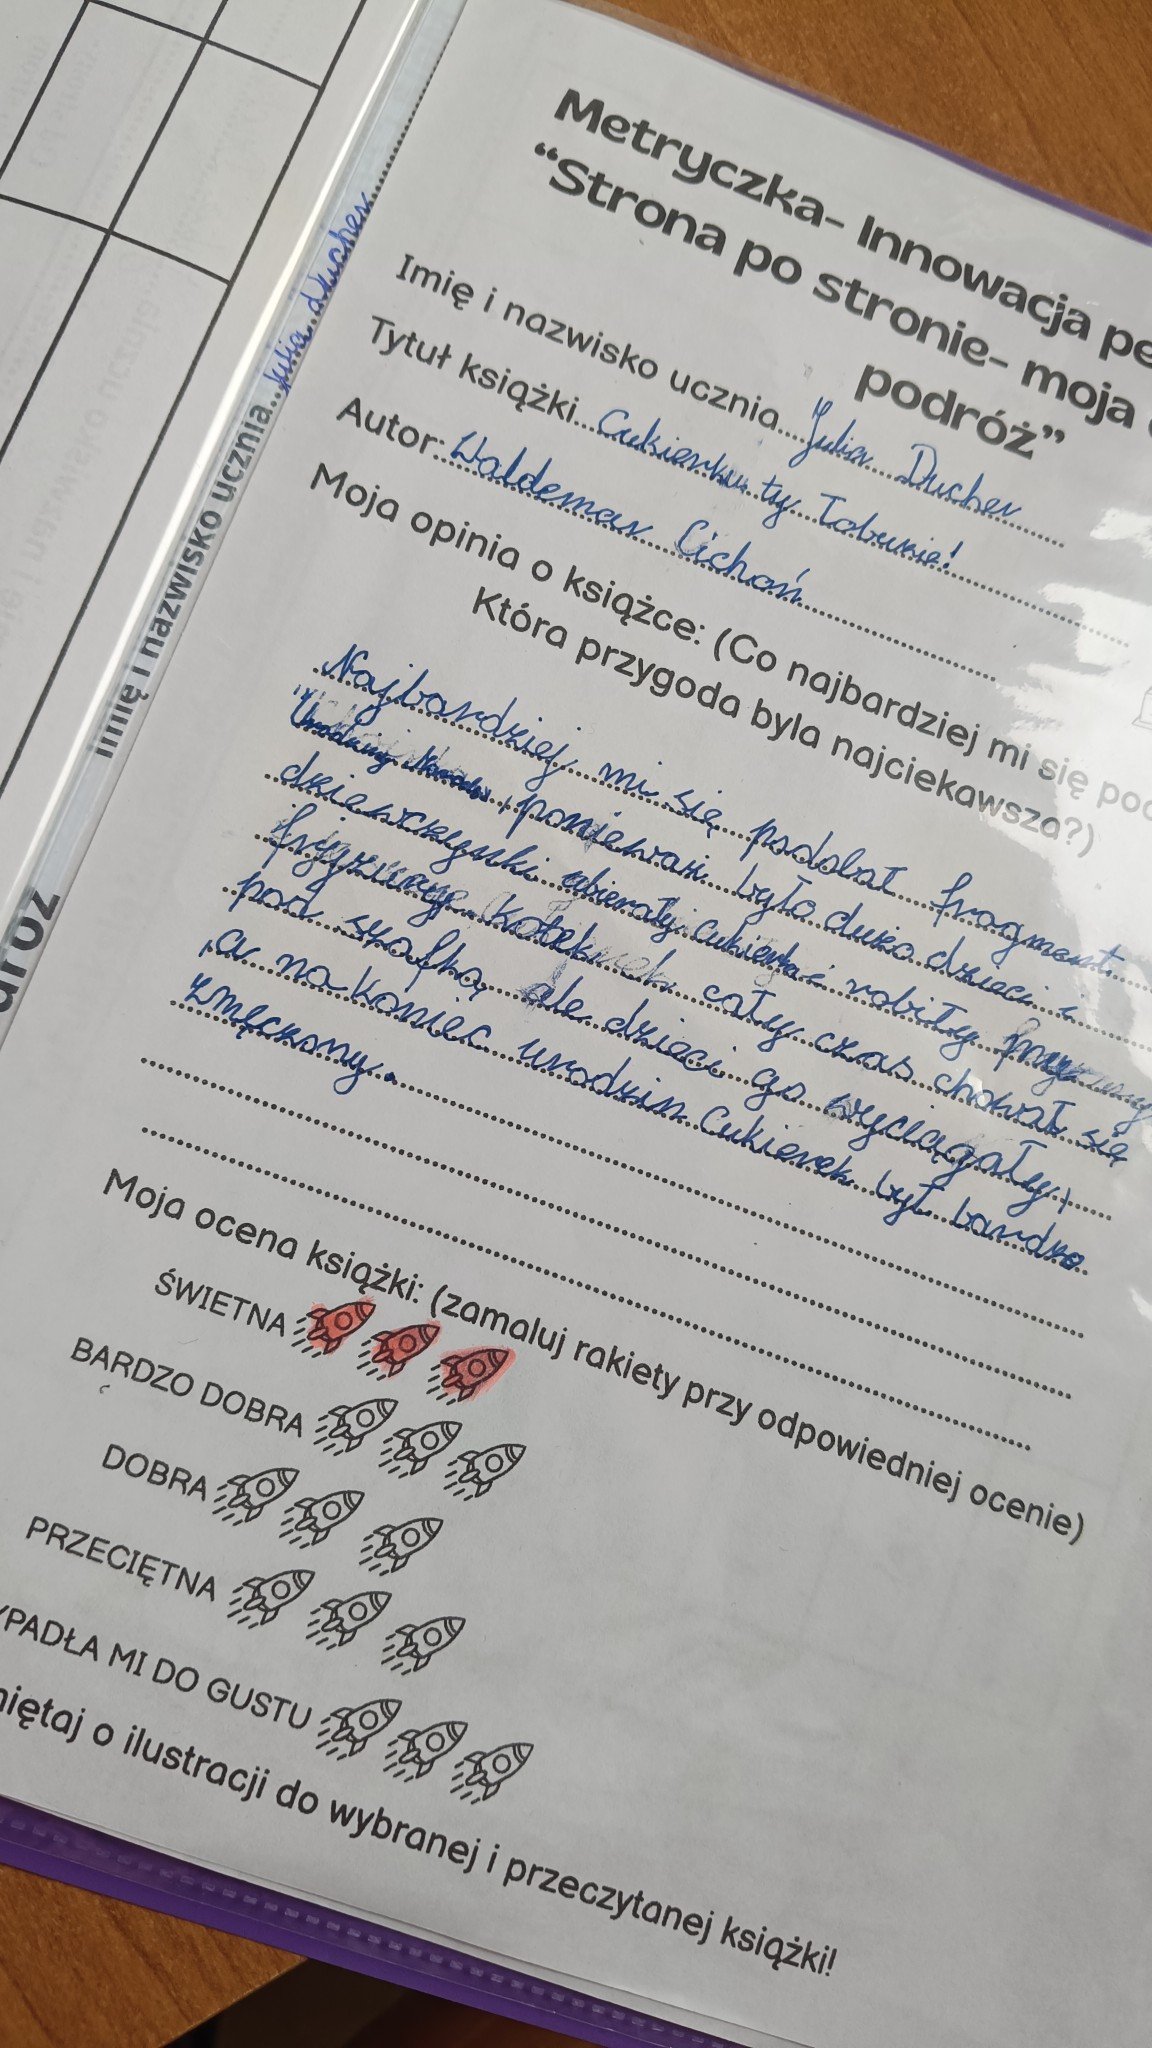 Metryczka- Innowacja pe
“Strona po stronie- moja
podróż”
Imię i nazwisko ucznia...Julia Ducher
Tytuł książki...Cukierku, ty łobuzie!
Autor: Waldemar Cichoń
Moja opinia o książce: (Co najbardziej mi się pod
Która przygoda była najciekawsza?)
Najbardziej mi się podobał fragment
"Urodziny , ponieważ było dużo dzieci i
dziewczynki ubierały cukierka i robiły
fryzury, kotek cały czas chował się
pod szafką, ale dzieci go wyciągały,
,a na koniec urodzin Cukierek był bardzo
zmęczony.
Moja ocena książki: (zamaluj rakiety przy odpowiedniej ocenie)
ŚWIETNA
BARDZO DOBRA
DOBRA
PRZECIĘTNA
YPADŁA MI DO GUSTU
miętaj o ilustracji do wybranej i przeczytanej książki!
Imię i nazwisko ucznia...julia ducher
dróż